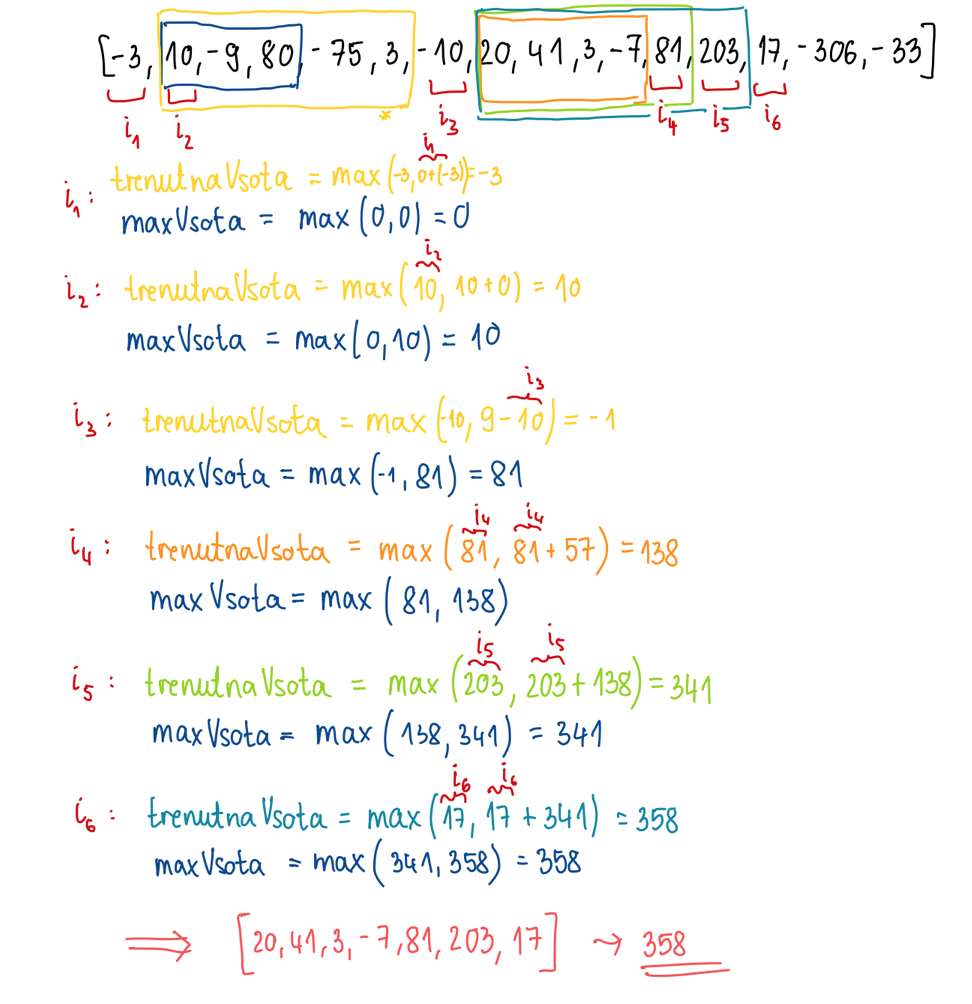 [-3, 10, -9, 80, -75, 3, -10, 20, 41, 3, -7, 81, 203, 17, -306, -33]
i₁ i₂ * i₃ i₄ i₅ i₆
i₁
i₁: trenutnaVsota = max(-3, 0+(-3))=-3
maxVsota = max(0,0) = 0
i₂
i₂: trenutnaVsota = max(10, 10+0) = 10
maxVsota = max(0,10) = 10
i₃
i₃: trenutnaVsota = max(-10, 9-10) = -1
maxVsota = max(-1, 81) = 81
i₄ i₄
i₄: trenutnaVsota = max(81, 81+57) = 138
maxVsota = max(81, 138)
i₅ i₅
i₅: trenutnaVsota = max(203, 203+138) = 341
maxVsota = max(138, 341) = 341
i₆ i₆
i₆: trenutnaVsota = max(17, 17+341) = 358
maxVsota = max(341, 358) = 358
⟹ [20, 41, 3, -7, 81, 203, 17] → 358